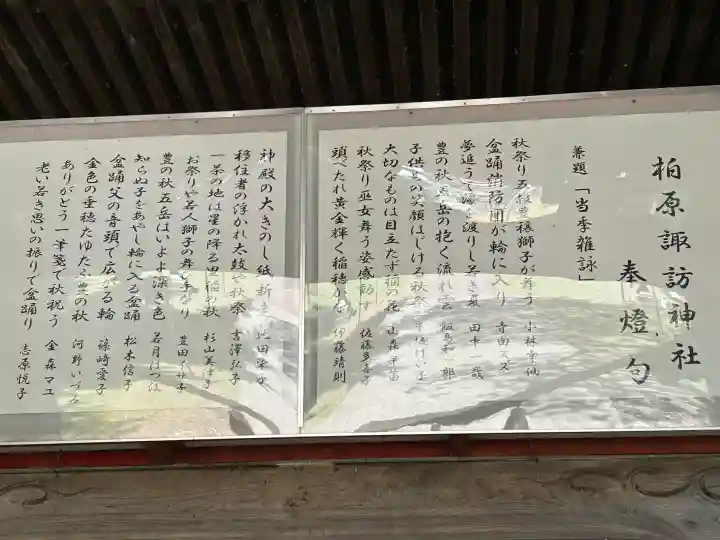 柏原諏訪神社
奉燈句
兼題「当季雑詠」
秋祭り五穀豊穣獅子が舞う 小林幸仙
盆踊消防団が輪に入り 寺田スズ
夢追うて 渡りし 夏 田中一哉
豊の秋 岳の抱く流れ雲 飯島和郎
子供らの笑顔はじける秋祭 け い子
大切なものは目立たず稲の花
秋祭り巫女舞う姿感動す 佐藤多喜子
頭べたれ黄金輝く稲穂かな 伊藤靖則
神殿の大きのし紙新 池田
移住者の浮かれ太鼓や秋祭 吉澤弘子
一茶の地は星の降る里稲の秋 杉山
お祭りや若人獅子の舞 手なり 豊田
豊の秋五岳はいよよ深き色 若月
知らぬ子をあやし輪に入る盆踊 松木信子
盆踊父の音頭で広がる輪 篠崎愛子
金色の垂穂たゆたふ豊の秋 河野いづみ
ありがとう一筆箋で秋祝う 金森マユ
老い若き思いの振りで盆踊り 志原悦子